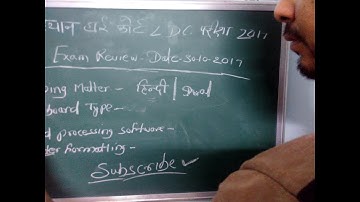 हाई कोर्ट LDC परीक्षा 2017
Exam Review-Date-30-10-2017
Matter - हिन्दी |
board Type -
processing software -
Formatting -
Subscribe ✓